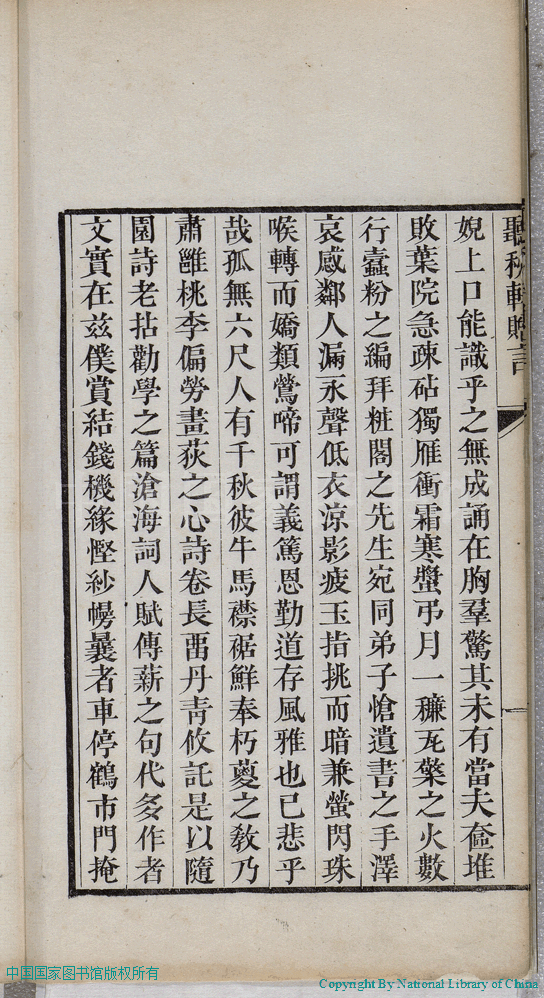 聽秋軒贈言
婗上口能識乎之無成誦在胸羣驚其未有當夫奩堆
敗葉院急疎砧獨雁衝霜寒螿弔月一穅瓦檠之火數
行蠹粉之編拜粧閣之先生宛同弟子愴遺書之手澤
哀感鄰人漏永聲低衣涼影疲玉指挑而暗兼螢閃珠
喉轉而嬌類鶯啼可謂義篤恩勤道存風雅也已悲乎
哉孤無六尺人有千秋彼牛馬襟裾鮮奉朽夔之敎乃
肅雝桃李偏勞畫荻之心詩卷長畱丹靑攸託是以隨
園詩老拈勸學之篇滄海詞人賦傳薪之句代多作者
文實在兹僕賞結錢機緣慳紗幔曩者車停鶴市門掩
中国国家图书馆版权所有
Copyright By National Library of China